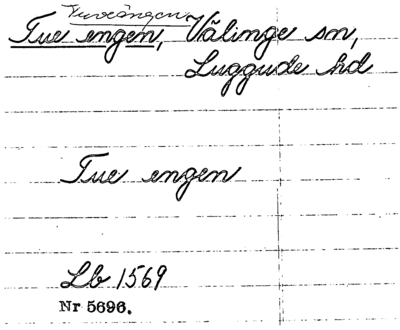 Tueängen
Tue engen, Välinge sn,
Luggude hd
Tue engen
Lb 1569
Nr 5696.